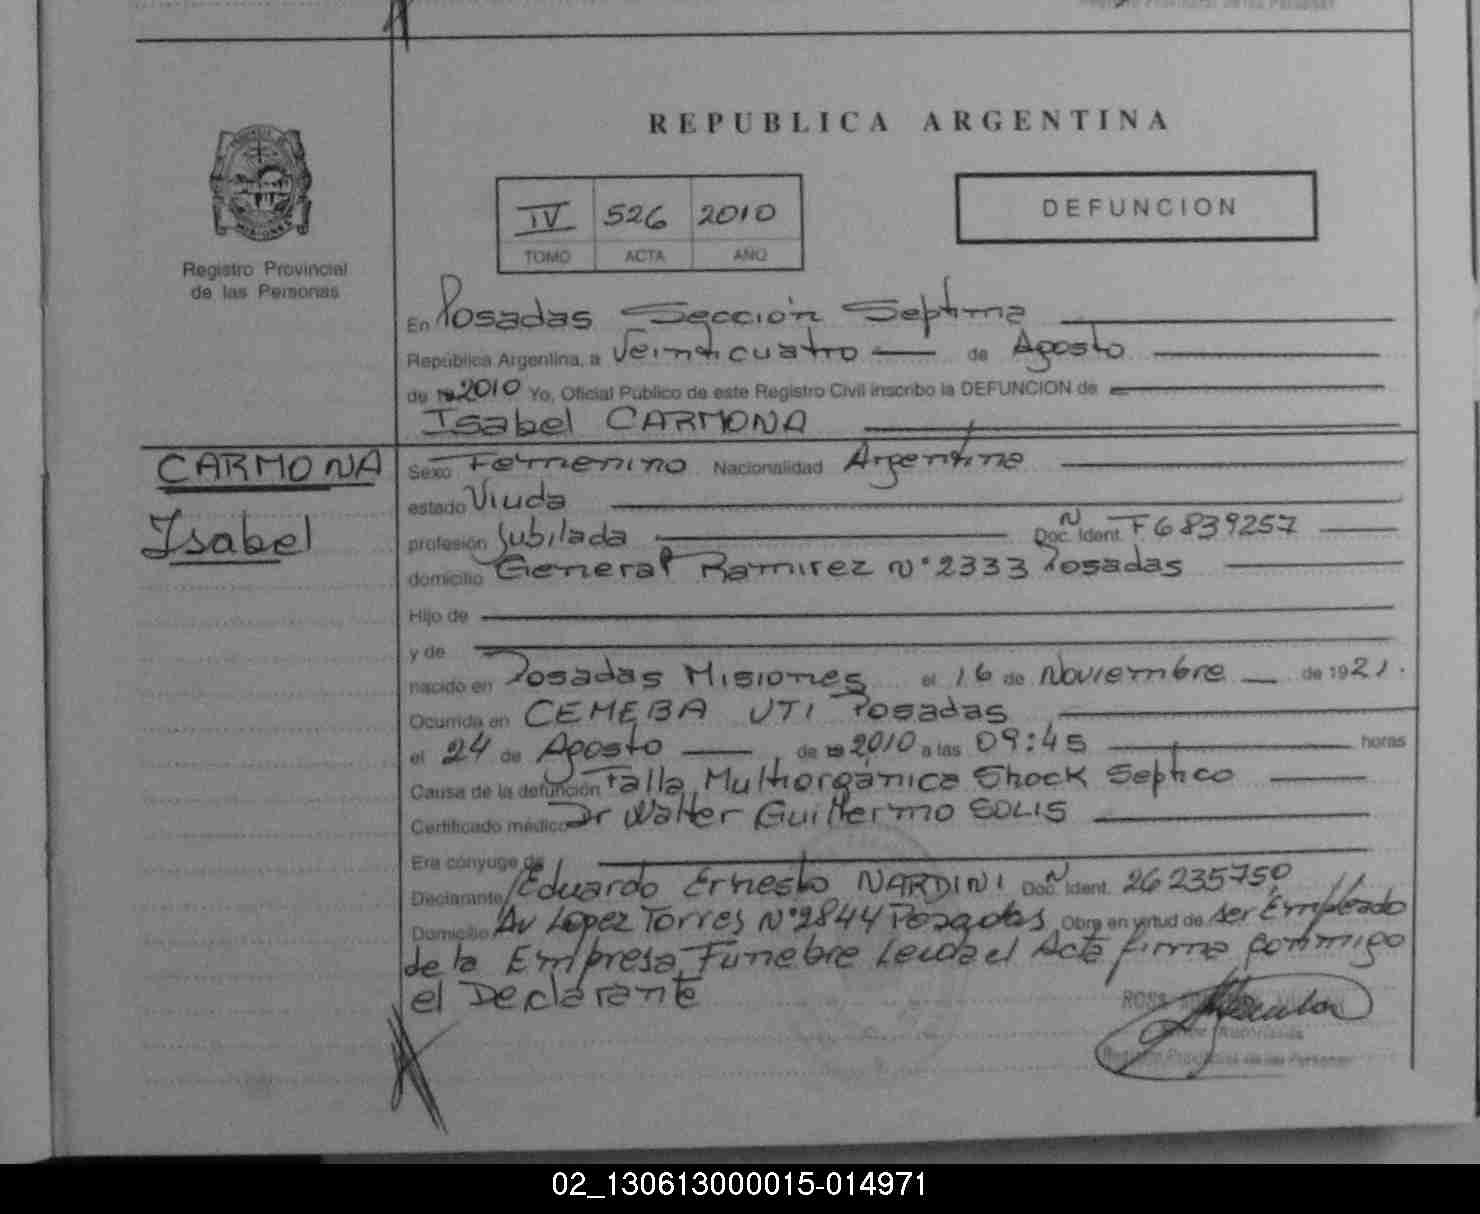 REPUBLICA ARGENTINA
IV 526 2010
TOMO ACTA AÑO
DEFUNCION
Registro Provincial
de las Personas
En Posadas Sección Septima
República Argentina, a Veinticuatro de Agosto
de 19 2010 Yo, Oficial Público de este Registro Civil inscribo la DEFUNCION de
Isabel CARMONA
CARMONA
Isabel
Sexo Femenino Nacionalidad Argentina
estado Viuda
profesión Jubilada Doc. Ident. N F6839257
domicilio General Ramirez N° 2333 Posadas
Hijo de
y de
nacido en Posadas Misiones el 16 de Noviembre de 1921.
Ocurrida en CEMEBA UTI Posadas
el 24 de Agosto de 19 2010 a las 09:45 horas
Causa de la defunción Falla Multiorganica Shock Septico
Certificado médico Dr Walter Guillermo SOLIS
Era cónyuge de
Declarante Eduardo Ernesto NARDINI Doc. Ident. N 26235750
Domicilio Av Lopez Torres N° 2844 Posadas Obra en virtud de ser Empleado
de la Empresa Funebre Leida el Acta firma conmigo
el Declarante
Registro Provincial de las Personas
02_130613000015-014971